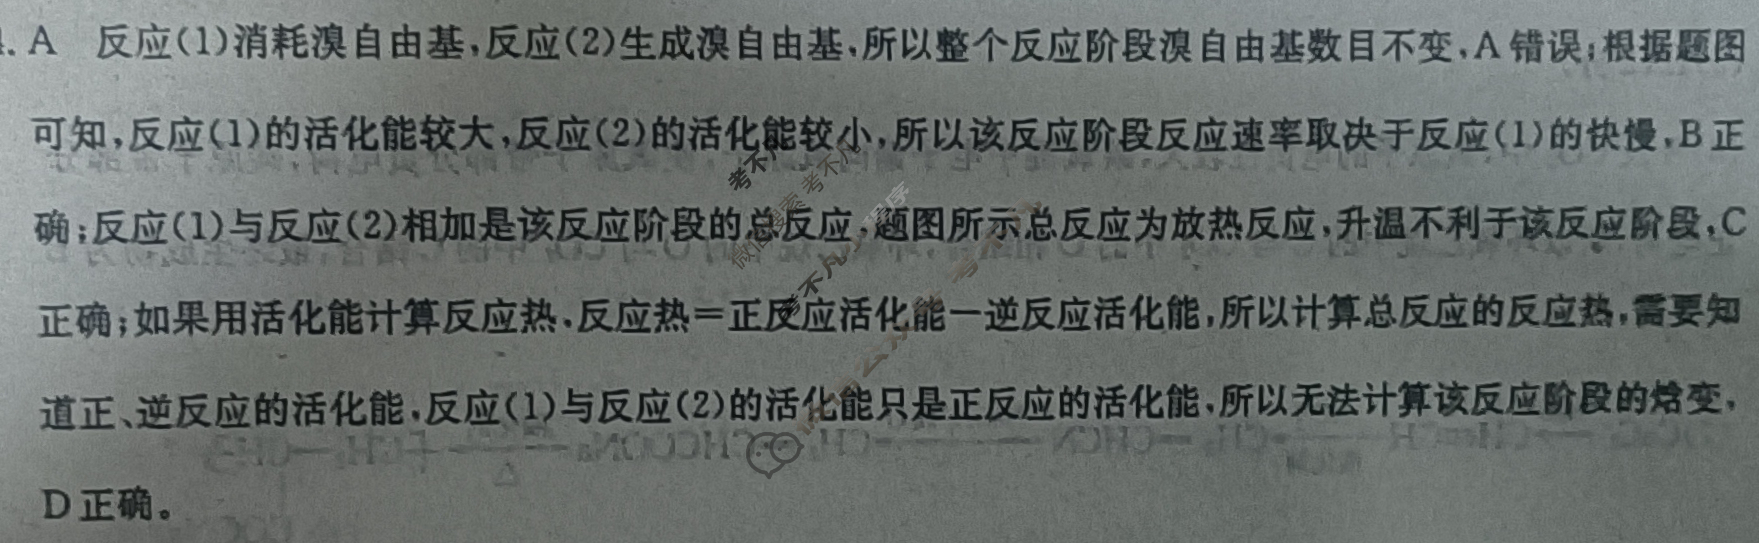 . A 反应(1)消耗溴自由基,反应(2)生成溴自由基,所以整个反应阶段溴自由基数目不变,A错误;根据题图
可知,反应(1)的活化能较大,反应(2)的活化能较小,所以该反应阶段反应速率取决于反应(1)的快慢,B正
确;反应(1)与反应(2)相加是该反应阶段的总反应,题图所示总反应为放热反应,升温不利于该反应阶段,C
正确;如果用活化能计算反应热,反应热=正反应活化能-逆反应活化能,所以计算总反应的反应热,需要知
道正、逆反应的活化能,反应(1)与反应(2)的活化能只是正反应的活化能,所以无法计算该反应阶段的焓变,
D正确。